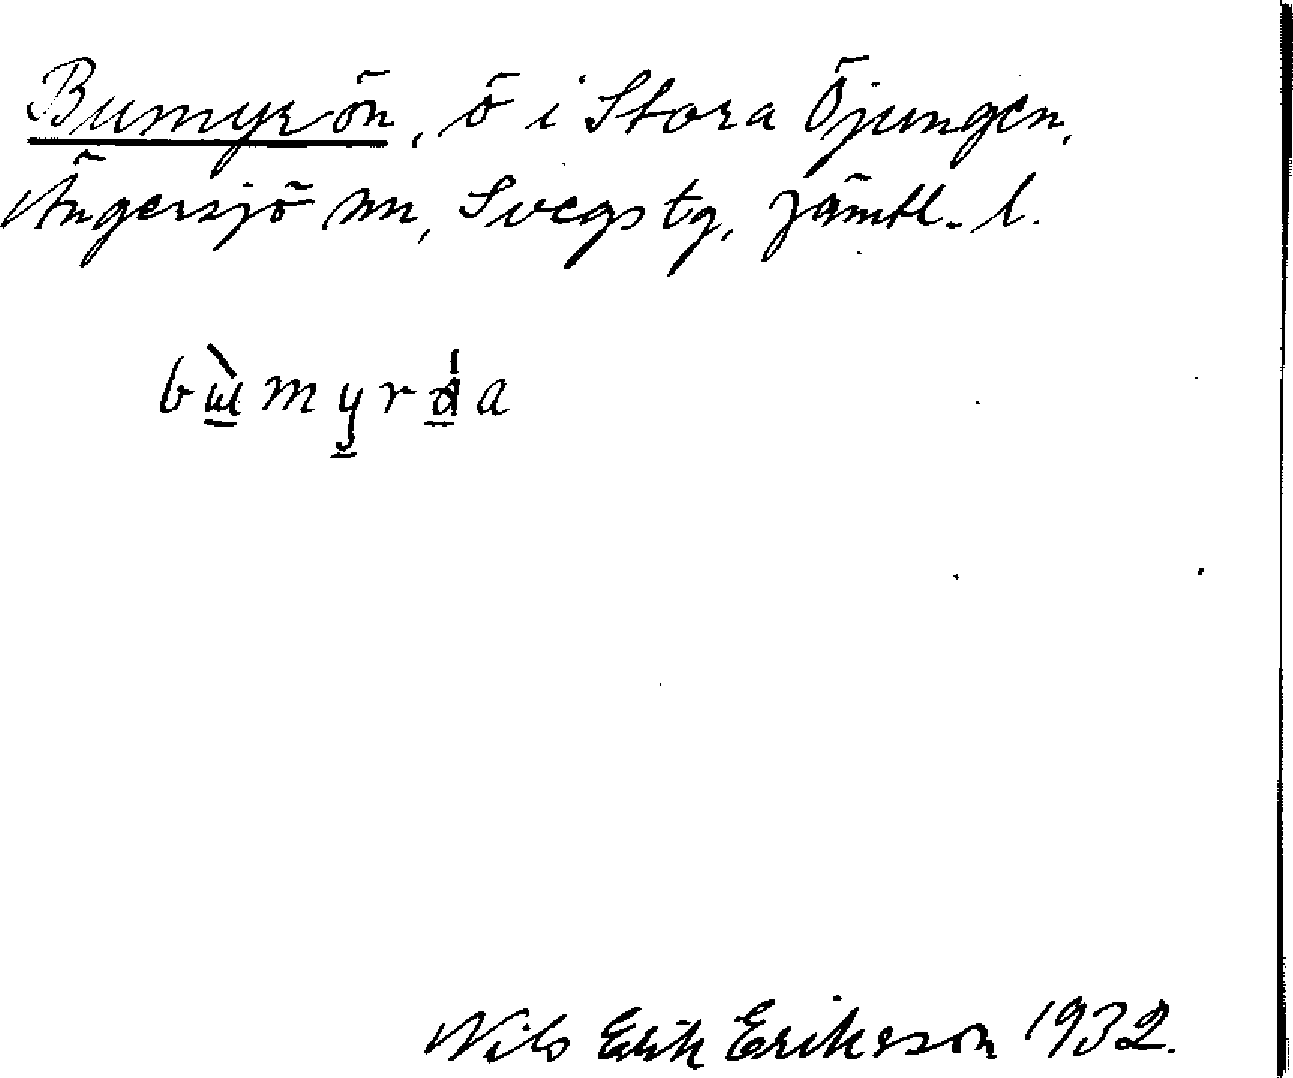 Bumyrön, ö i Stora Öjungen,
Ängersjö sn, Svegs tg, Jämtl. l.
bùmyrǿa
Nils Erik Eriksson 1932.